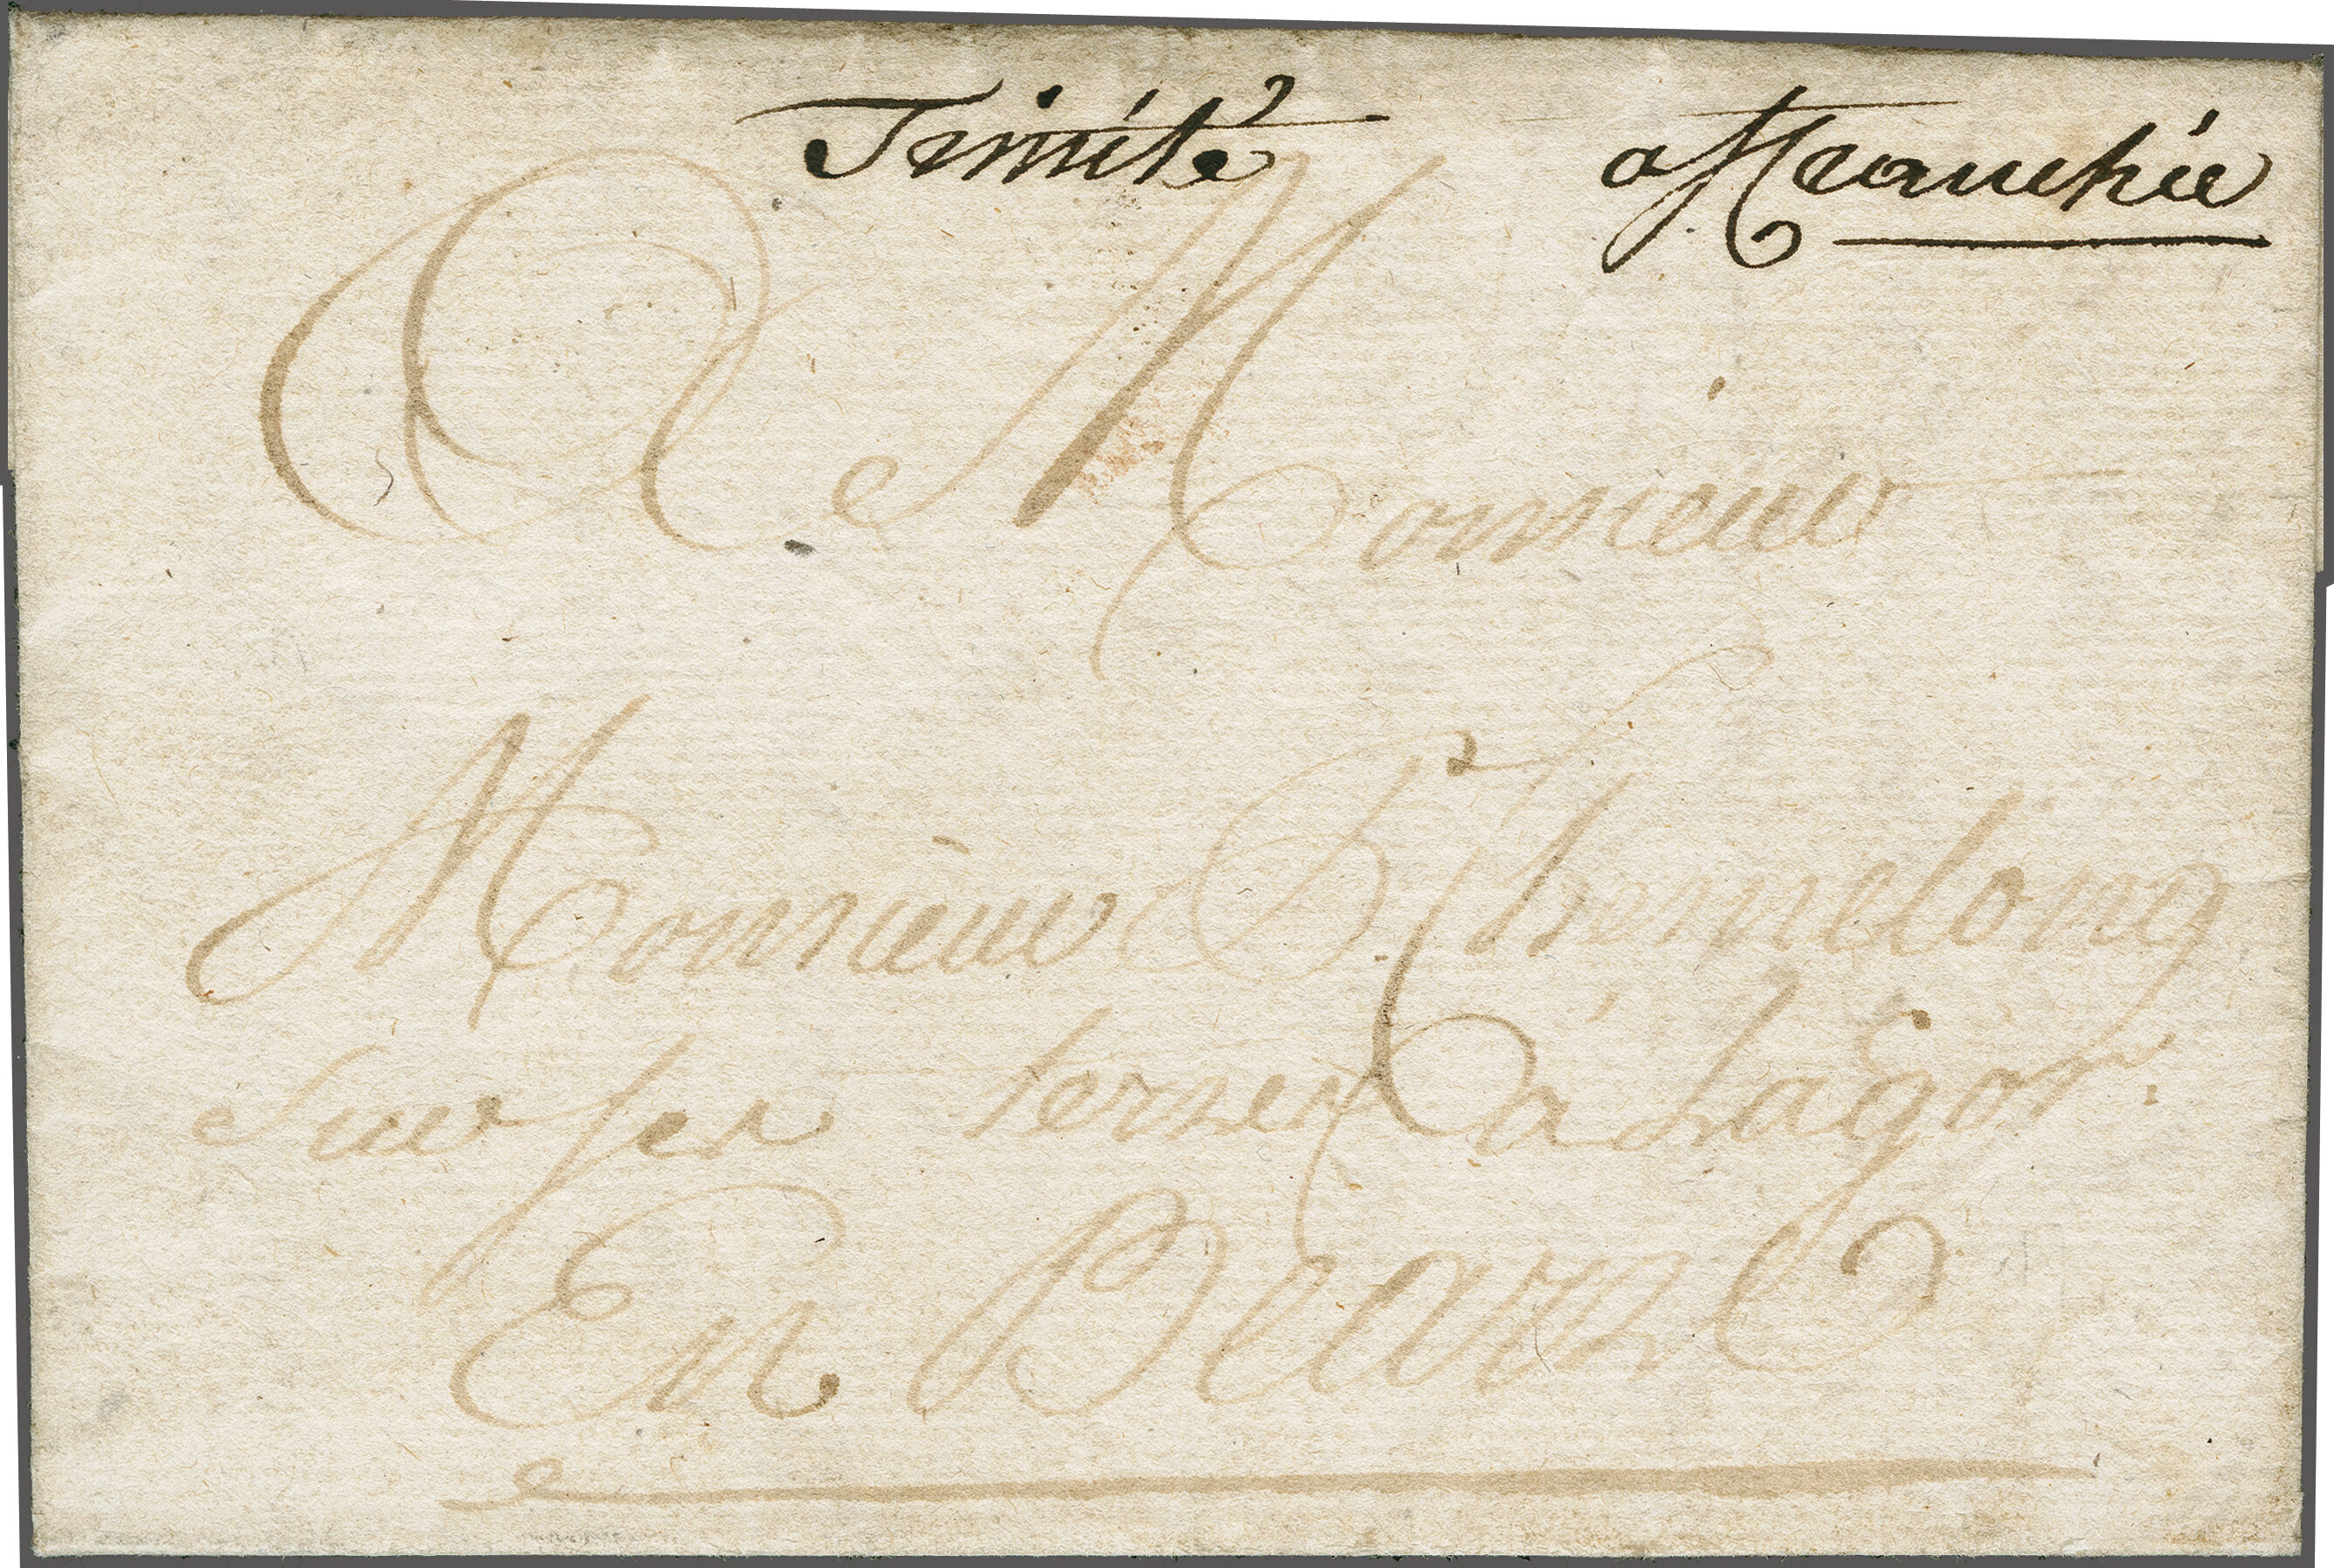 Trinité affranchie
A Monsieur
Monsieur Chemelong
Sur ses terres à Lagor.
En Bearn